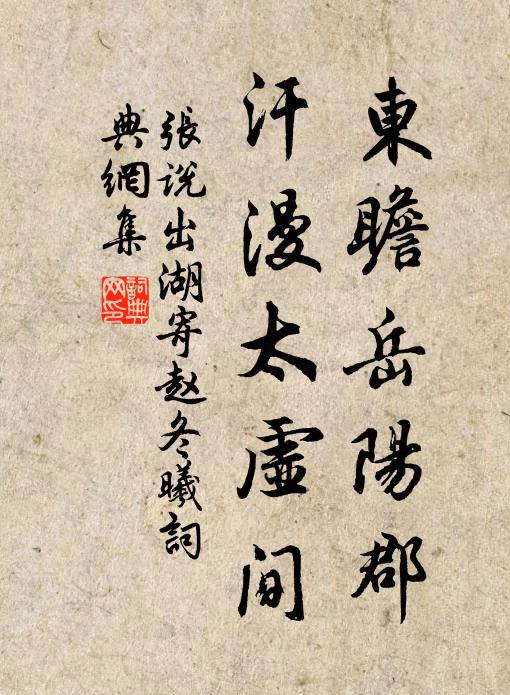 東瞻岳陽郡
汗漫太虛间
張说出湖寄赵冬曦詞
典網集
詞典
网印